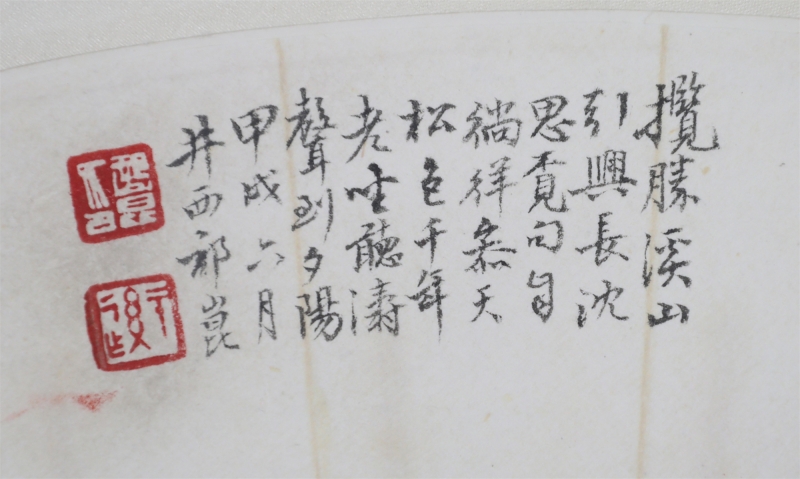 攬勝溪山
引興長沈
思覓句自
徜徉叅天
松色千年
老坐聽濤
聲到夕陽
甲戌六月
井西祁崑